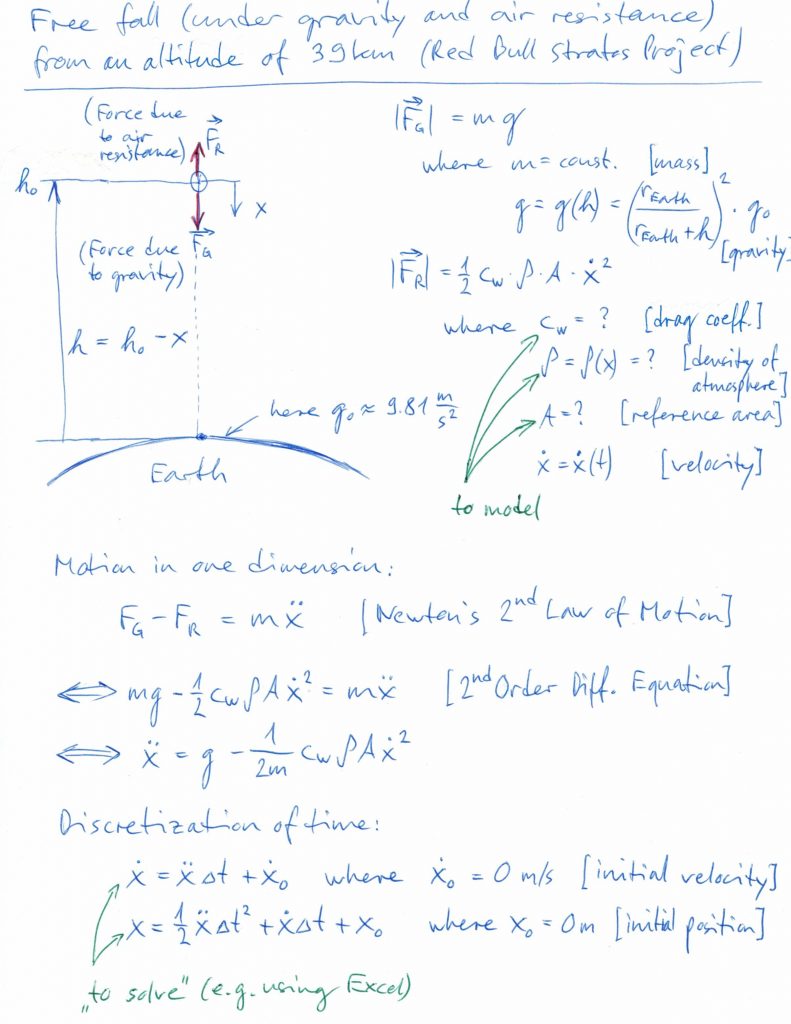 Free fall (under gravity and air resistance)
from an altitude of 39km (Red Bull Stratos Project)
(Force due
to air
resistance)
F_R
h₀
x
(Force due
to gravity)
F_G
h = h₀ - x
here g₀ ≈ 9.81 m/s²
Earth
|F_G| = m g
where m = const. [mass]
g = g(h) = (r_Earth / (r_Earth + h))² · g₀
[gravity]
|F_R| = 1/2 c_w · ρ · A · ẋ²
where c_w = ? [drag coeff.]
ρ = ρ(x) = ? [density of
atmosphere]
A = ? [reference area]
ẋ = ẋ(t) [velocity]
to model
Motion in one dimension:
F_G - F_R = m ẍ [Newton's 2nd Law of Motion]
⟺ mg - 1/2 c_w ρ A ẋ² = m ẍ [2nd Order Diff. Equation]
⟺ ẍ = g - 1/2m c_w ρ A ẋ²
Discretization of time:
ẋ = ẍ Δt + ẋ₀ where ẋ₀ = 0 m/s [initial velocity]
x = 1/2 ẍ Δt² + ẋ Δt + x₀ where x₀ = 0m [initial position]
„to solve" (e.g. using Excel)